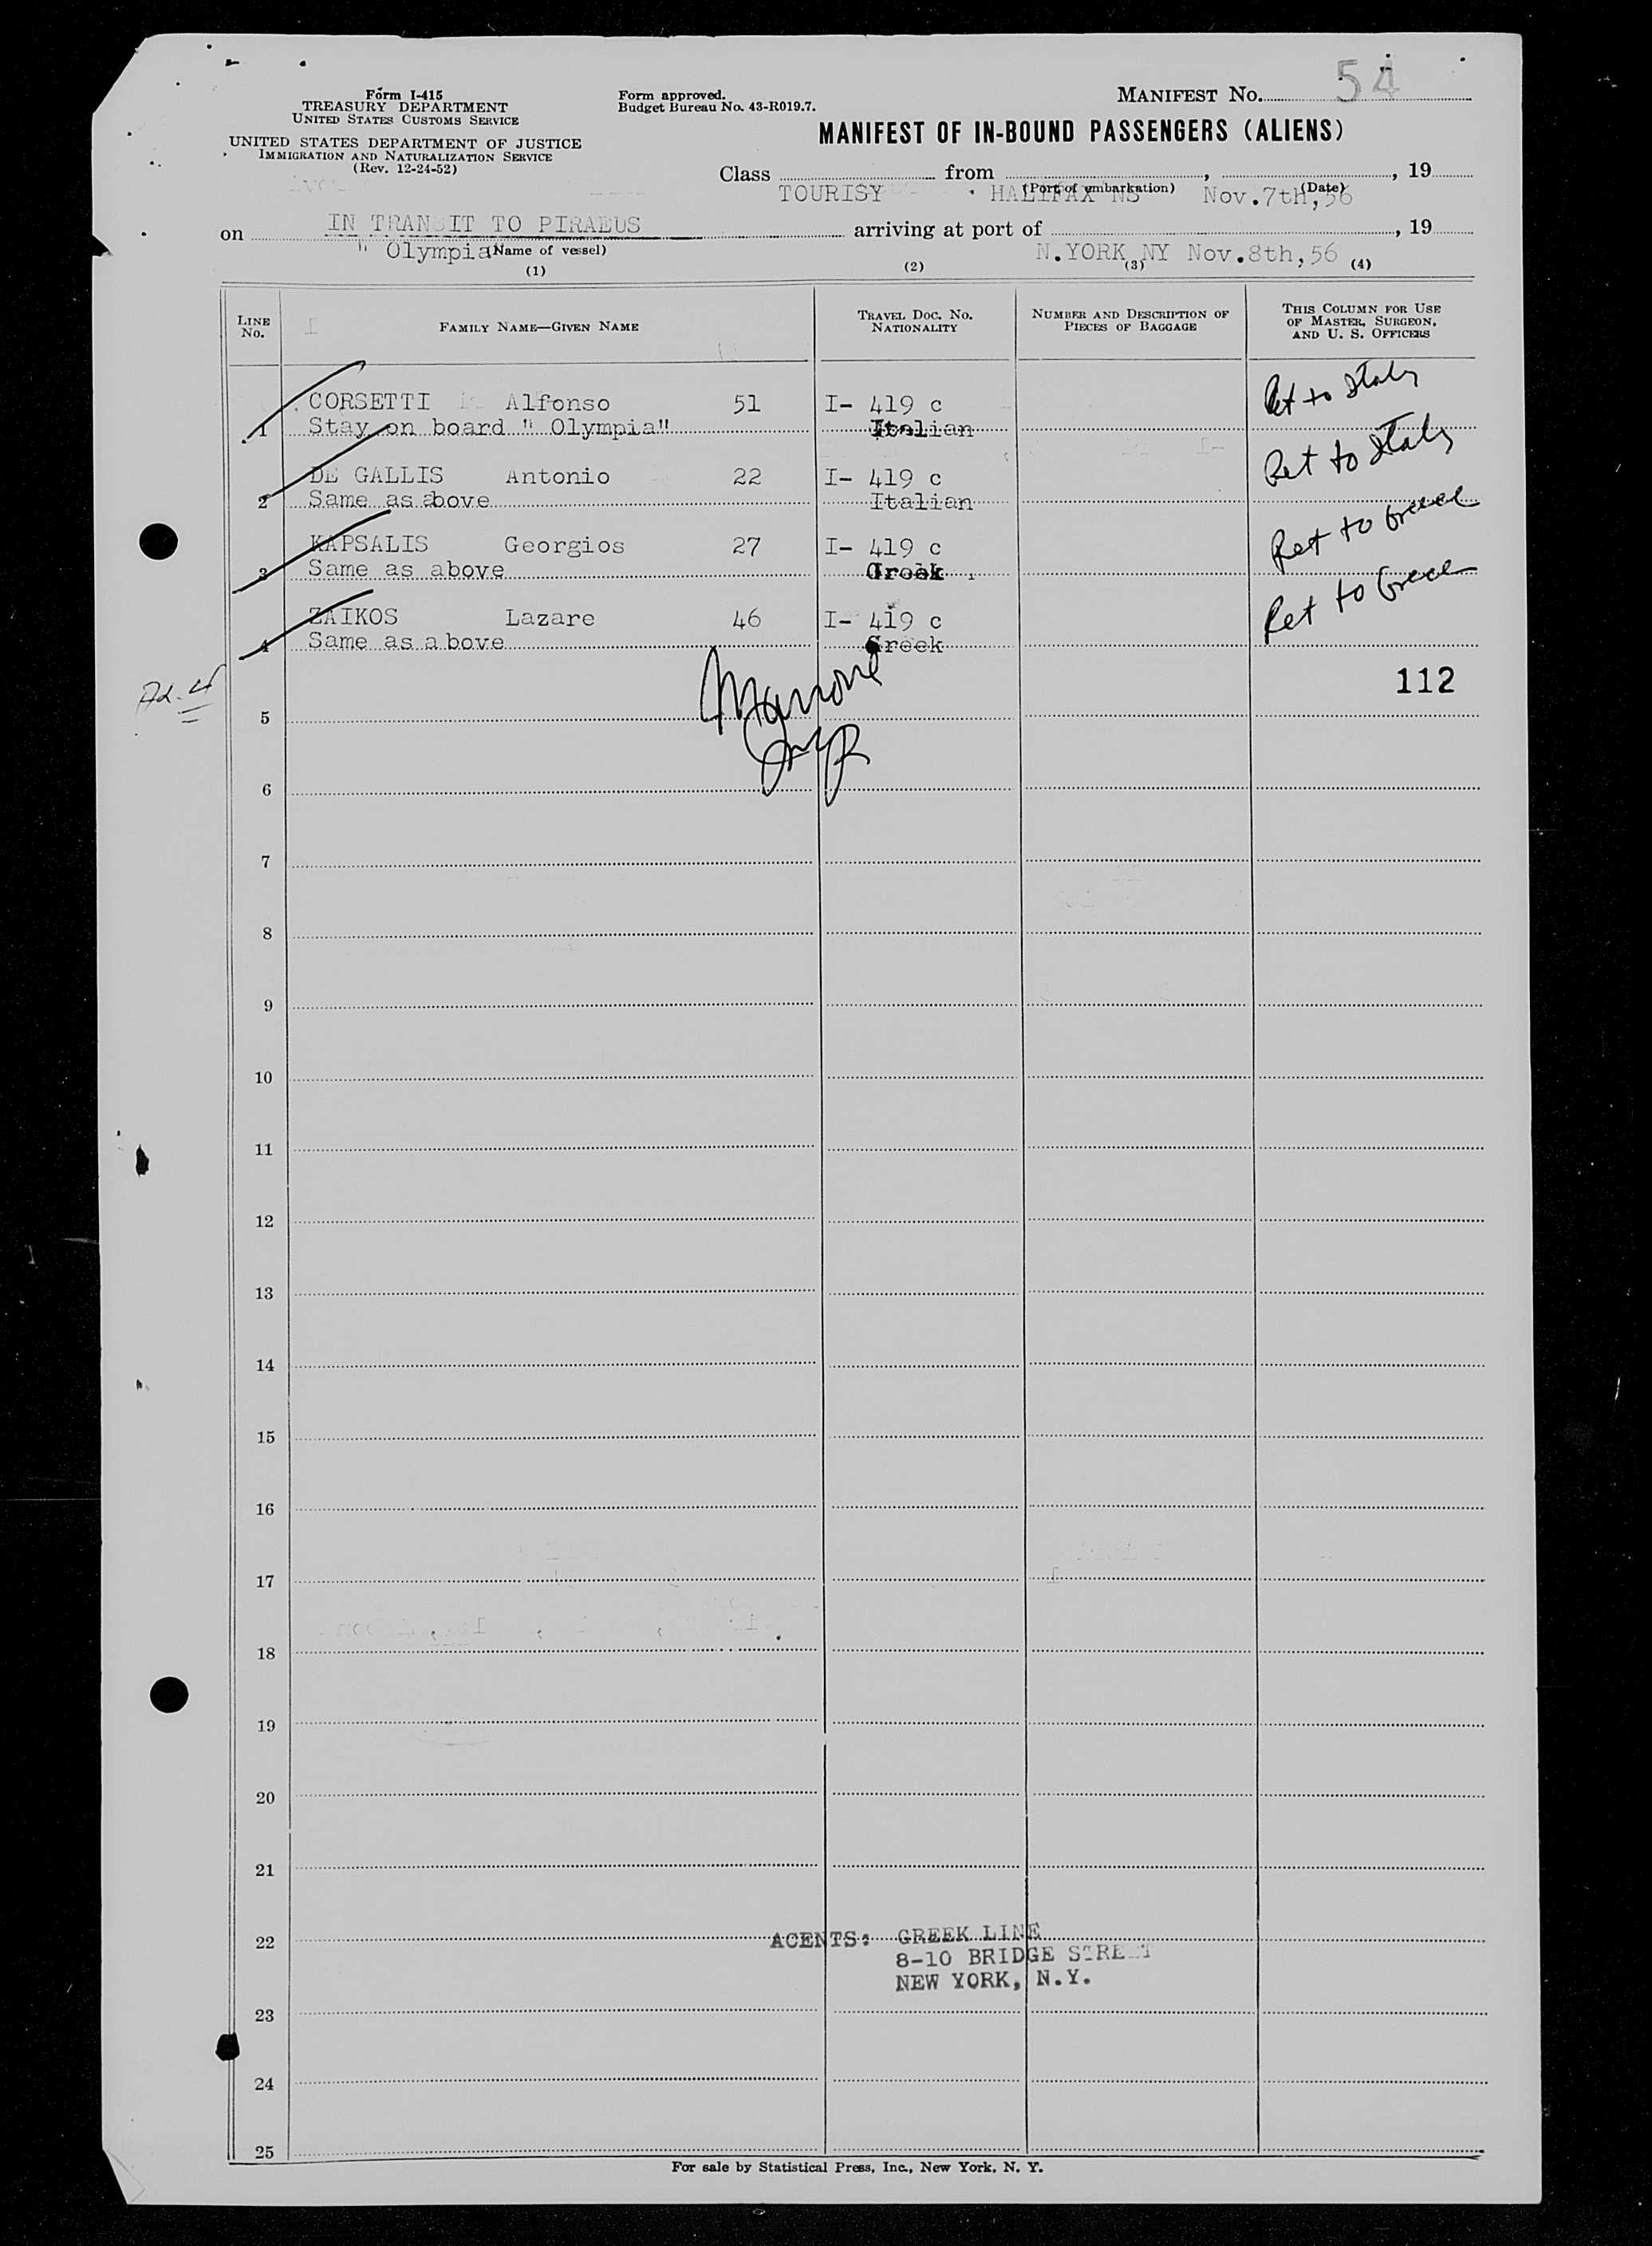 Form I-415
TREASURY DEPARTMENT
UNITED STATES CUSTOMS SERVICE
UNITED STATES DEPARTMENT OF JUSTICE
IMMIGRATION AND NATURALIZATION SERVICE
(Rev. 12-24-52)
Form approved.
Budget Bureau No. 43-R019.7.
MANIFEST No. 54
MANIFEST OF IN-BOUND PASSENGERS (ALIENS)
Class from , , 19
TOURISY HALIFAX NS (Port of embarkation) Nov.7th,56 (Date)
IN TRANSIT TO PIRAEUS
on arriving at port of , 19
" Olympia (Name of vessel) N.YORK NY Nov.8th,56
(1) (2) (3) (4)
LINE No. FAMILY NAME—GIVEN NAME TRAVEL DOC. No. NATIONALITY NUMBER AND DESCRIPTION OF PIECES OF BAGGAGE THIS COLUMN FOR USE OF MASTER, SURGEON, AND U. S. OFFICERS
CORSETTI Alfonso 51 I- 419 c Ret to Italy
1 Stay on board " Olympia" Italian
DE GALLIS Antonio 22 I- 419 c Ret to Italy
2 Same as above Italian
KAPSALIS Georgios 27 I- 419 c Ret to Greece
3 Same as above Greek
ZAIKOS Lazare 46 I- 419 c Ret to Greece
4 Same as above Greek
112
5
6
7
8
9
10
11
12
13
14
15
16
17
18
19
20
21
22 AGENTS: GREEK LINE
8-10 BRIDGE STREET
NEW YORK, N.Y.
23
24
25
For sale by Statistical Press, Inc., New York, N. Y.